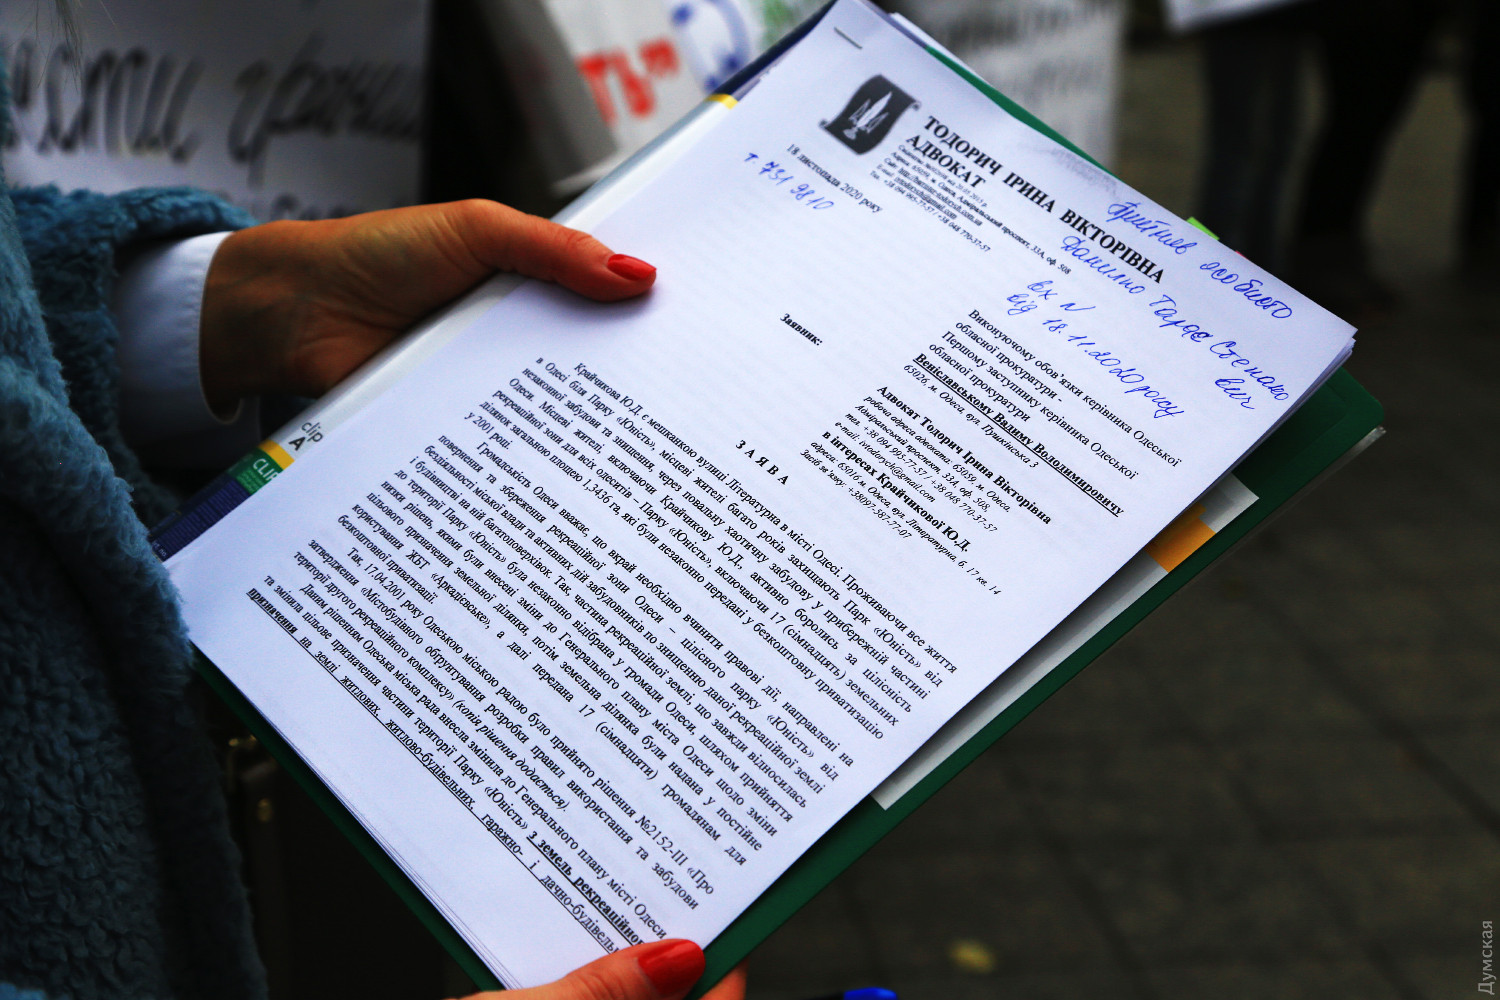 ТОДОРИЧ ІРИНА ВІКТОРІВНА
АДВОКАТ
Адреса: 65059, м. Одеса, Адміральський проспект, 33А, оф. 508
Тел. +38 094 995-77-57 / +38 048 770-37-57
18 листопада 2020 року
т. 731 98 10
Прийнев особисто
Данилко Тарас Степанович
вх N
від 18.11.2020 року
Виконуючому обов'язки керівника Одеської
обласної прокуратури -
Першому заступнику керівника Одеської
обласної прокуратури
Веніславському Вадиму Володимировичу
65026, м. Одеса, вул. Пушкінська 3
Заявник:
Адвокат Тодорич Ірина Вікторівна
робоча адреса адвоката: 65059, м. Одеса,
Адміральський проспект, 33А, оф. 508,
тел. +38 094 995-77-57 / +38 048 770-37-57
e-mail: ivtodorych@gmail.com
в інтересах Крайчикової Ю.Д.
адреса: 65016 м. Одеса, вул. Літературна, б. 17 кв. 14
Засіб зв'язку: +38097-387-77-07
З А Я В А
Крайчикова Ю.Д. є мешканкою вулиці Літературна в місті Одесі. Проживаючи все життя
в Одесі біля Парку «Юність», місцеві жителі багато років захищають Парк «Юність» від
незаконної забудови та знищення, через повальну хаотичну забудову у прибережній частині
Одеси. Місцеві жителі, включаючи Крайчикову Ю.Д., активно боролись за цілісність
рекреаційної зони для всіх одеситів – Парку «Юність», включаючи 17 (сімнадцять) земельних
ділянок загальною площею 1,3456 га, які були незаконно передані у безкоштовну приватизацію
у 2001 році.
Громадськість Одеси вважає, що вкрай необхідно вчинити правові дії, направлені на
повернення та збереження рекреаційної зони Одеси – цілісного парку «Юність» від
бездіяльності міської влади та активних дій забудовників по знищенню даної рекреаційної землі
і будівництві на ній багатоповерхівок. Так, частина рекреаційної землі, що завжди відносилась
до території Парку «Юність» була незаконно відібрана у громади Одеси, шляхом прийняття
низки рішень, якими були внесені зміни до Генерального плану міста Одеси щодо зміни
цільового призначення земельної ділянки, потім земельна ділянка були надана у постійне
користування ЖБТ «Аркадієвське», а далі передана 17 (сімнадцяти) громадянам для
безкоштовної приватизації.
Так, 17.04.2001 року Одеською міською радою було прийнято рішення №2152-III «Про
затвердження «Містобудівного обґрунтування розробки правил використання та забудови
території другого рекреаційного комплексу» (копія рішення додається).
Даним рішенням Одеська міська рада внесла змінила до Генерального плану місті Одеси
та змінила цільове призначення частини території Парку «Юність» з земель рекреаційного
призначення на землі житлових, житлово-будівельних, гаражно- і дачно-будівель
clip
A
CLIP
ТЬ"
Думская